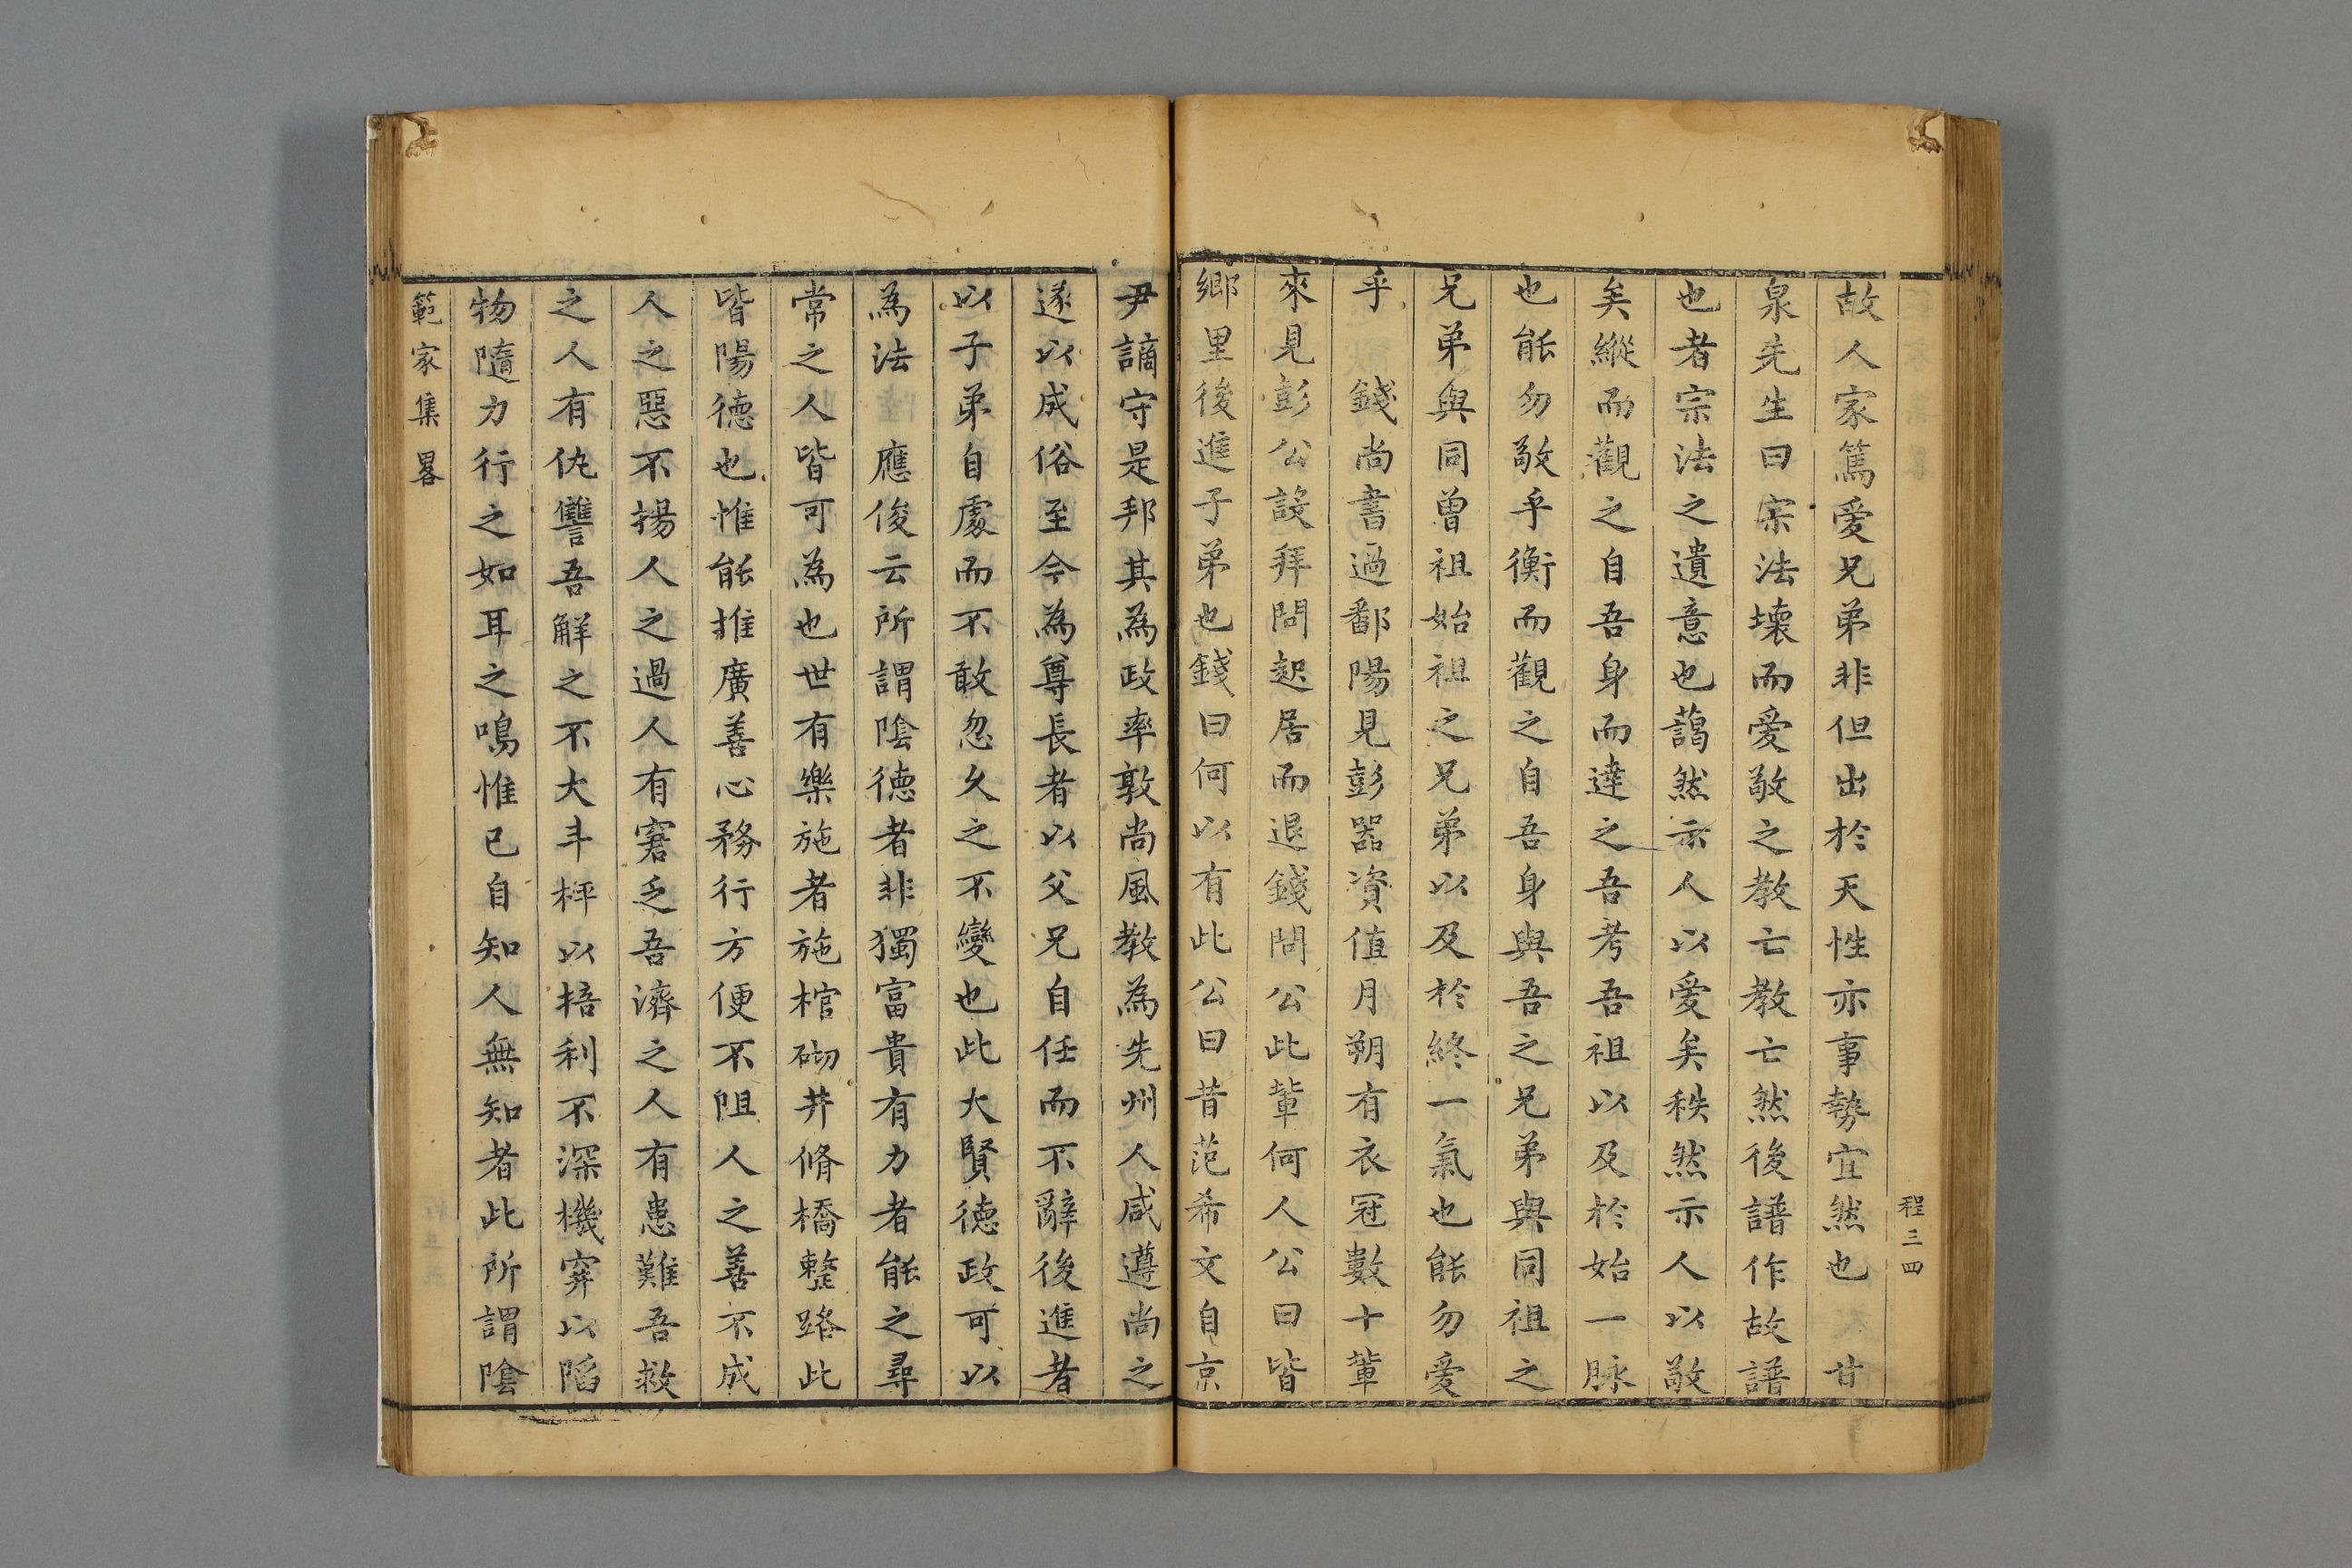 程三四
故人家篤愛兄弟非但出於天性亦事勢宜然也 甘
泉先生曰宗法壞而愛敬之教亡教亡然後譜作故譜
也者宗法之遺意也藹然示人以愛矣秩然示人以敬
矣縱而觀之自吾身而達之吾考吾祖以及於始一脉
也能勿敬乎衡而觀之自吾身與吾之兄弟與同祖之
兄弟與同曾祖始祖之兄弟以及於終一氣也能勿愛
乎 錢尚書過鄱陽見彭器資值月朔有衣冠數十輩
來見彭公設拜問起居而退錢問公此輩何人公曰皆
鄉里後進子弟也錢曰何以有此公曰昔范希文自京
尹謫守是邦其為政率敦尚風教為先州人咸遵尚之
遂以成俗至今為尊長者以父兄自任而不辭後進者
以子弟自處而不敢忽久之不變也此大賢德政可以
為法 應俊云所謂陰德者非獨富貴有力者能之尋
常之人皆可為也世有樂施者施棺砌井脩橋整路此
皆陽德也惟能推廣善心務行方便不阻人之善不成
人之惡不揚人之過人有窘乏吾濟之人有患難吾救
之人有仇讐吾解之不大斗秤以掊利不深機穽以陷
物隨力行之如耳之鳴惟己自知人無知者此所謂陰
範家集畧